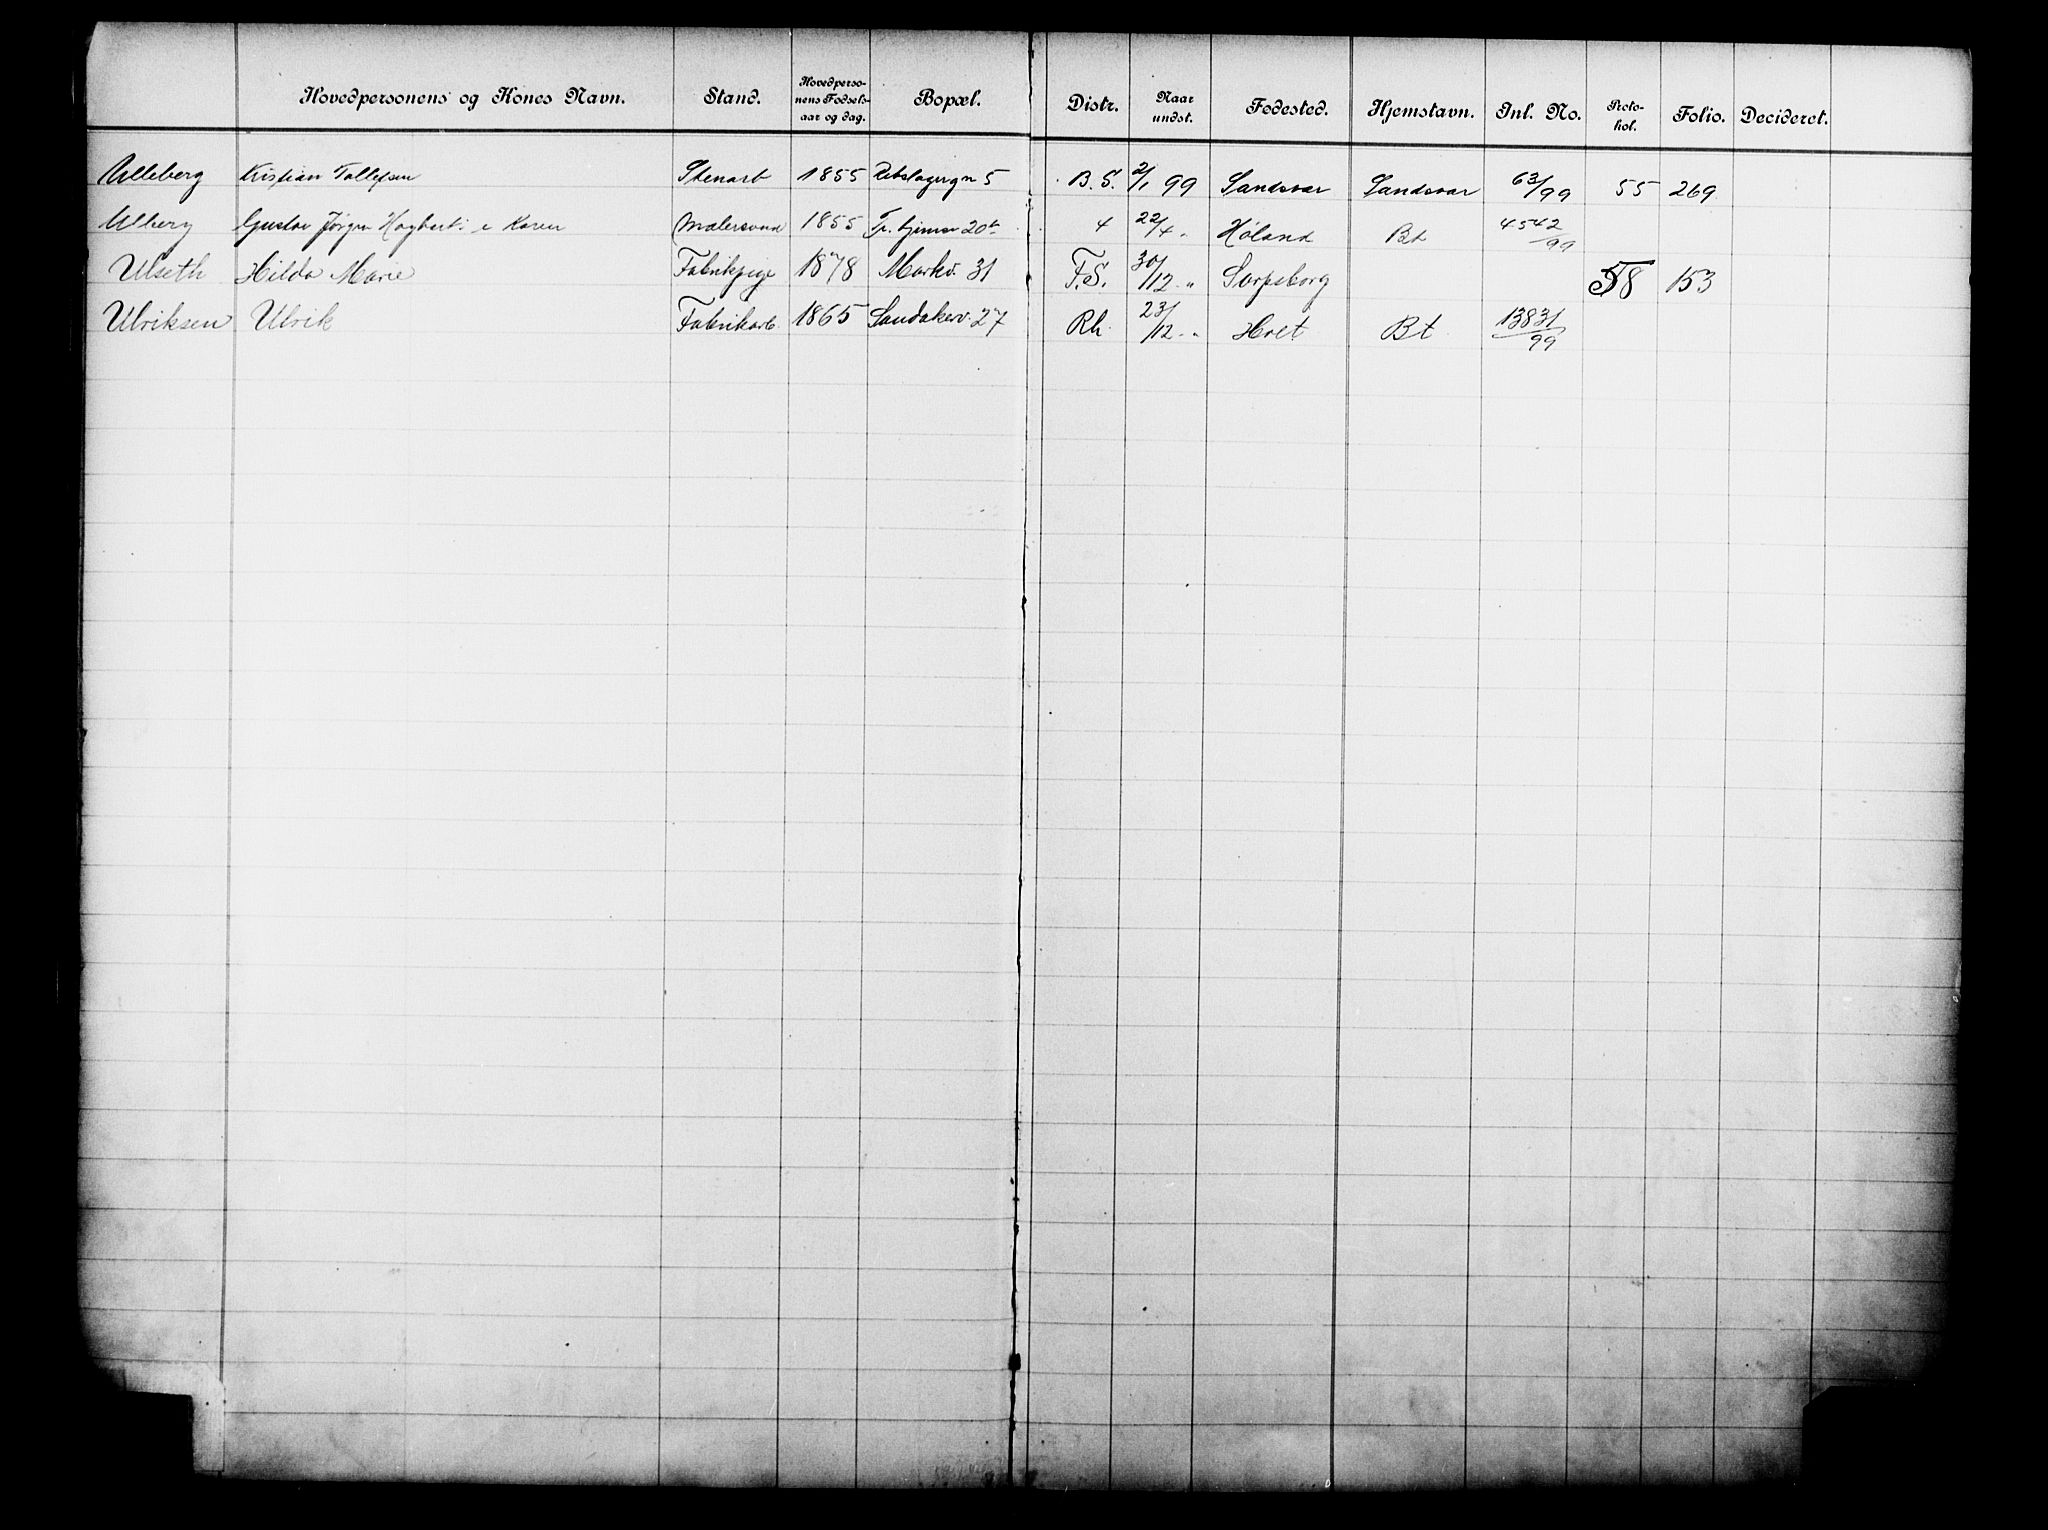 Hovedpersonens og Kones Navn. Stand. Hovedpersonens Fødselsaar og dag. Bopæl. Distr. Naar undst. Fødested. Hjemstavn. Inl. No. Protokol. Folio. Decideret.
Ulleberg Kristian Tollefsen Stenarb 1855 Rebslagergn 5 B.S. 2/1 99 Sandsvær Sandsvær 63/99 55 269
Ulberg Gustav Jørgen Hagbart e Karen Malersvend 1855 20b 4 22/4 " Høland Bt 4542/99
Ulseth Hilda Marie Fabrikpige 1878 Markv. 31 F.S. 30/12 " Sarpsborg 58 153
Ulriksen Ulrik Fabrikarb 1865 Sandakerv. 27 Rh. 23/12 " Holt Bt 13831/99